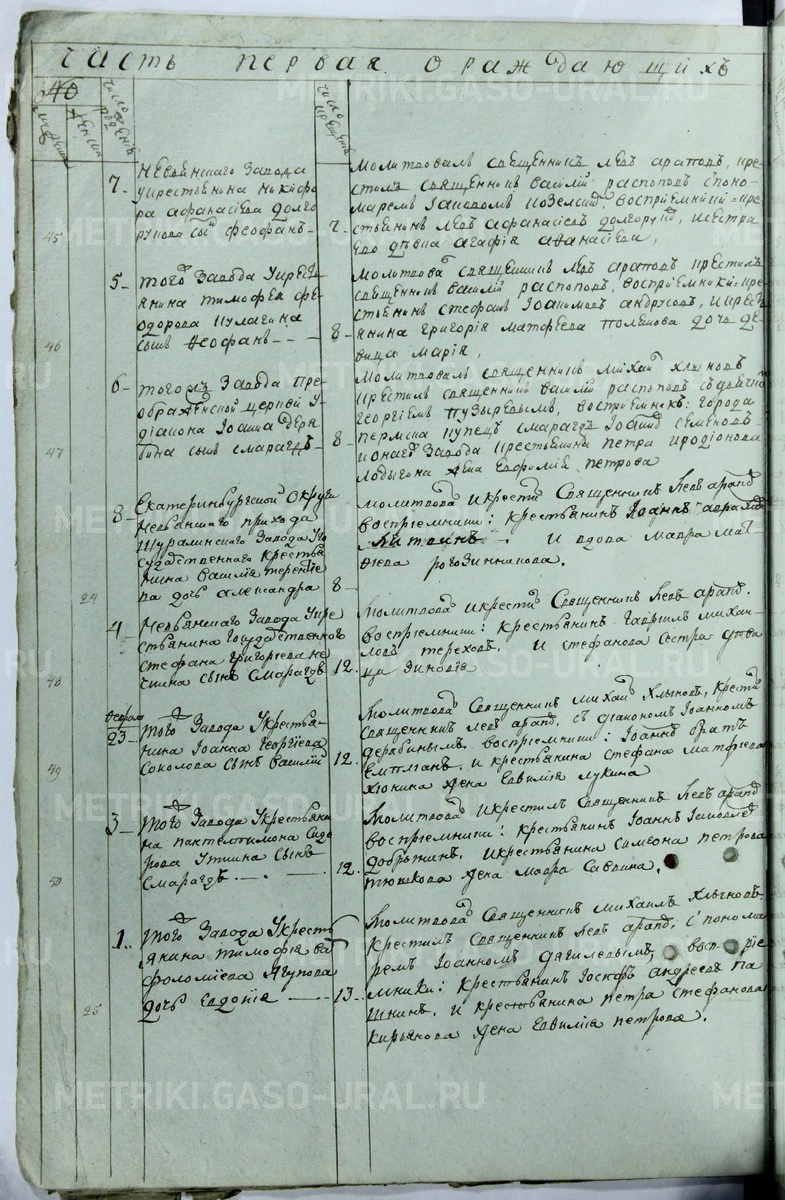 часть первая о раждающихъ
число рожденiя
число крещенiя
45
7
Невьянскаго Завода
у крестьянина Никифо
ра Афанасiева Долго
рукова сынъ Феофанъ
7
молитвовалъ священникъ левъ араповъ, кре
стилъ священникъ василiй распоповъ с поно
маремъ
воспрiемники: кре
стьянинъ левъ Афанасiевъ долгоруковъ, и сестра
его дѣвка агафiя Афанасiева,
46
5
того Завода у кресть
янина тимофея фе
одорова кулагина
сынъ Феофанъ
8
молитвовалъ священникъ левъ араповъ крестилъ
священникъ василiй распоповъ, воспрiемники: кре
стьянинъ стефанъ Iоакимовъ андрусовъ, и кресть
янина григорiя матфеева дочь дѣ
вица марiя,
47
6
того жъ Завода Пре
ображенской церкви у
дiакона Iоанна деря
бина сынъ смарагдъ
8
молитвовалъ священникъ михаилъ хлыновъ
крестилъ священникъ василiй распоповъ
георгiемъ пузыревымъ, воспрiемники: города
перми купецъ смарагдъ
Завода крестьянина петра иродiонова
жена Евфимiя петрова
24
8
Екатеринбургской округи
Невьянскаго прихода
Шуралинскаго Завода у го
сударственнаго крестья
нина Василiя
дочь александра
8
молитвовалъ и крестилъ Священникъ Левъ араповъ
воспрiемники: крестьянинъ Iоаннъ
и вдова мавра мат
фiева рогозинникова.
48
4
Невьянскаго Завода у кре
стьянина государственнаго
стефана григорiева
сынъ Смарагдъ
12.
молитвовалъ и крестилъ Священникъ Левъ араповъ.
воспрiемники: крестьянинъ гаврiилъ михаи
ловъ тереховъ. и стефанова сестра дѣви
ца Зиновiя
49
февраля
23
того Завода у крестья
нина Iоанна георгiева
соколова сынъ василiй
12.
молитвовалъ Священникъ михаилъ хлыновъ, крестилъ
священникъ левъ араповъ, съ дiакономъ Iоанномъ
дерябинымъ. воспрiемники: Iоаннъ
и крестьянина стефана матфiева
жена Евфимiя лукина
50
3
того Завода у крестьяни
на пантелеимона Сидо
рова Уткина сынъ
Смарагдъ
12.
молитвовалъ и крестилъ священникъ Левъ араповъ
воспрiемники: крестьянинъ Iоаннъ
и крестьянина симеона петрова
жена мавра Саввина.
25
1.
того Завода у кресть
янина тимофiя ва
фоломiева Ягупова
дочь Евдокiя
13.
молитвовалъ Священникъ михаилъ Хлыновъ.
крестилъ Священникъ Левъ араповъ, с понома
ремъ Iоанномъ дягилевымъ, воспрiе
мники: крестьянинъ Iосифъ андреевъ па
шнинъ. и крестьянина петра стефанова
кирьянова жена Евфимiя петрова.
METRIKI.GASO-URAL.RU